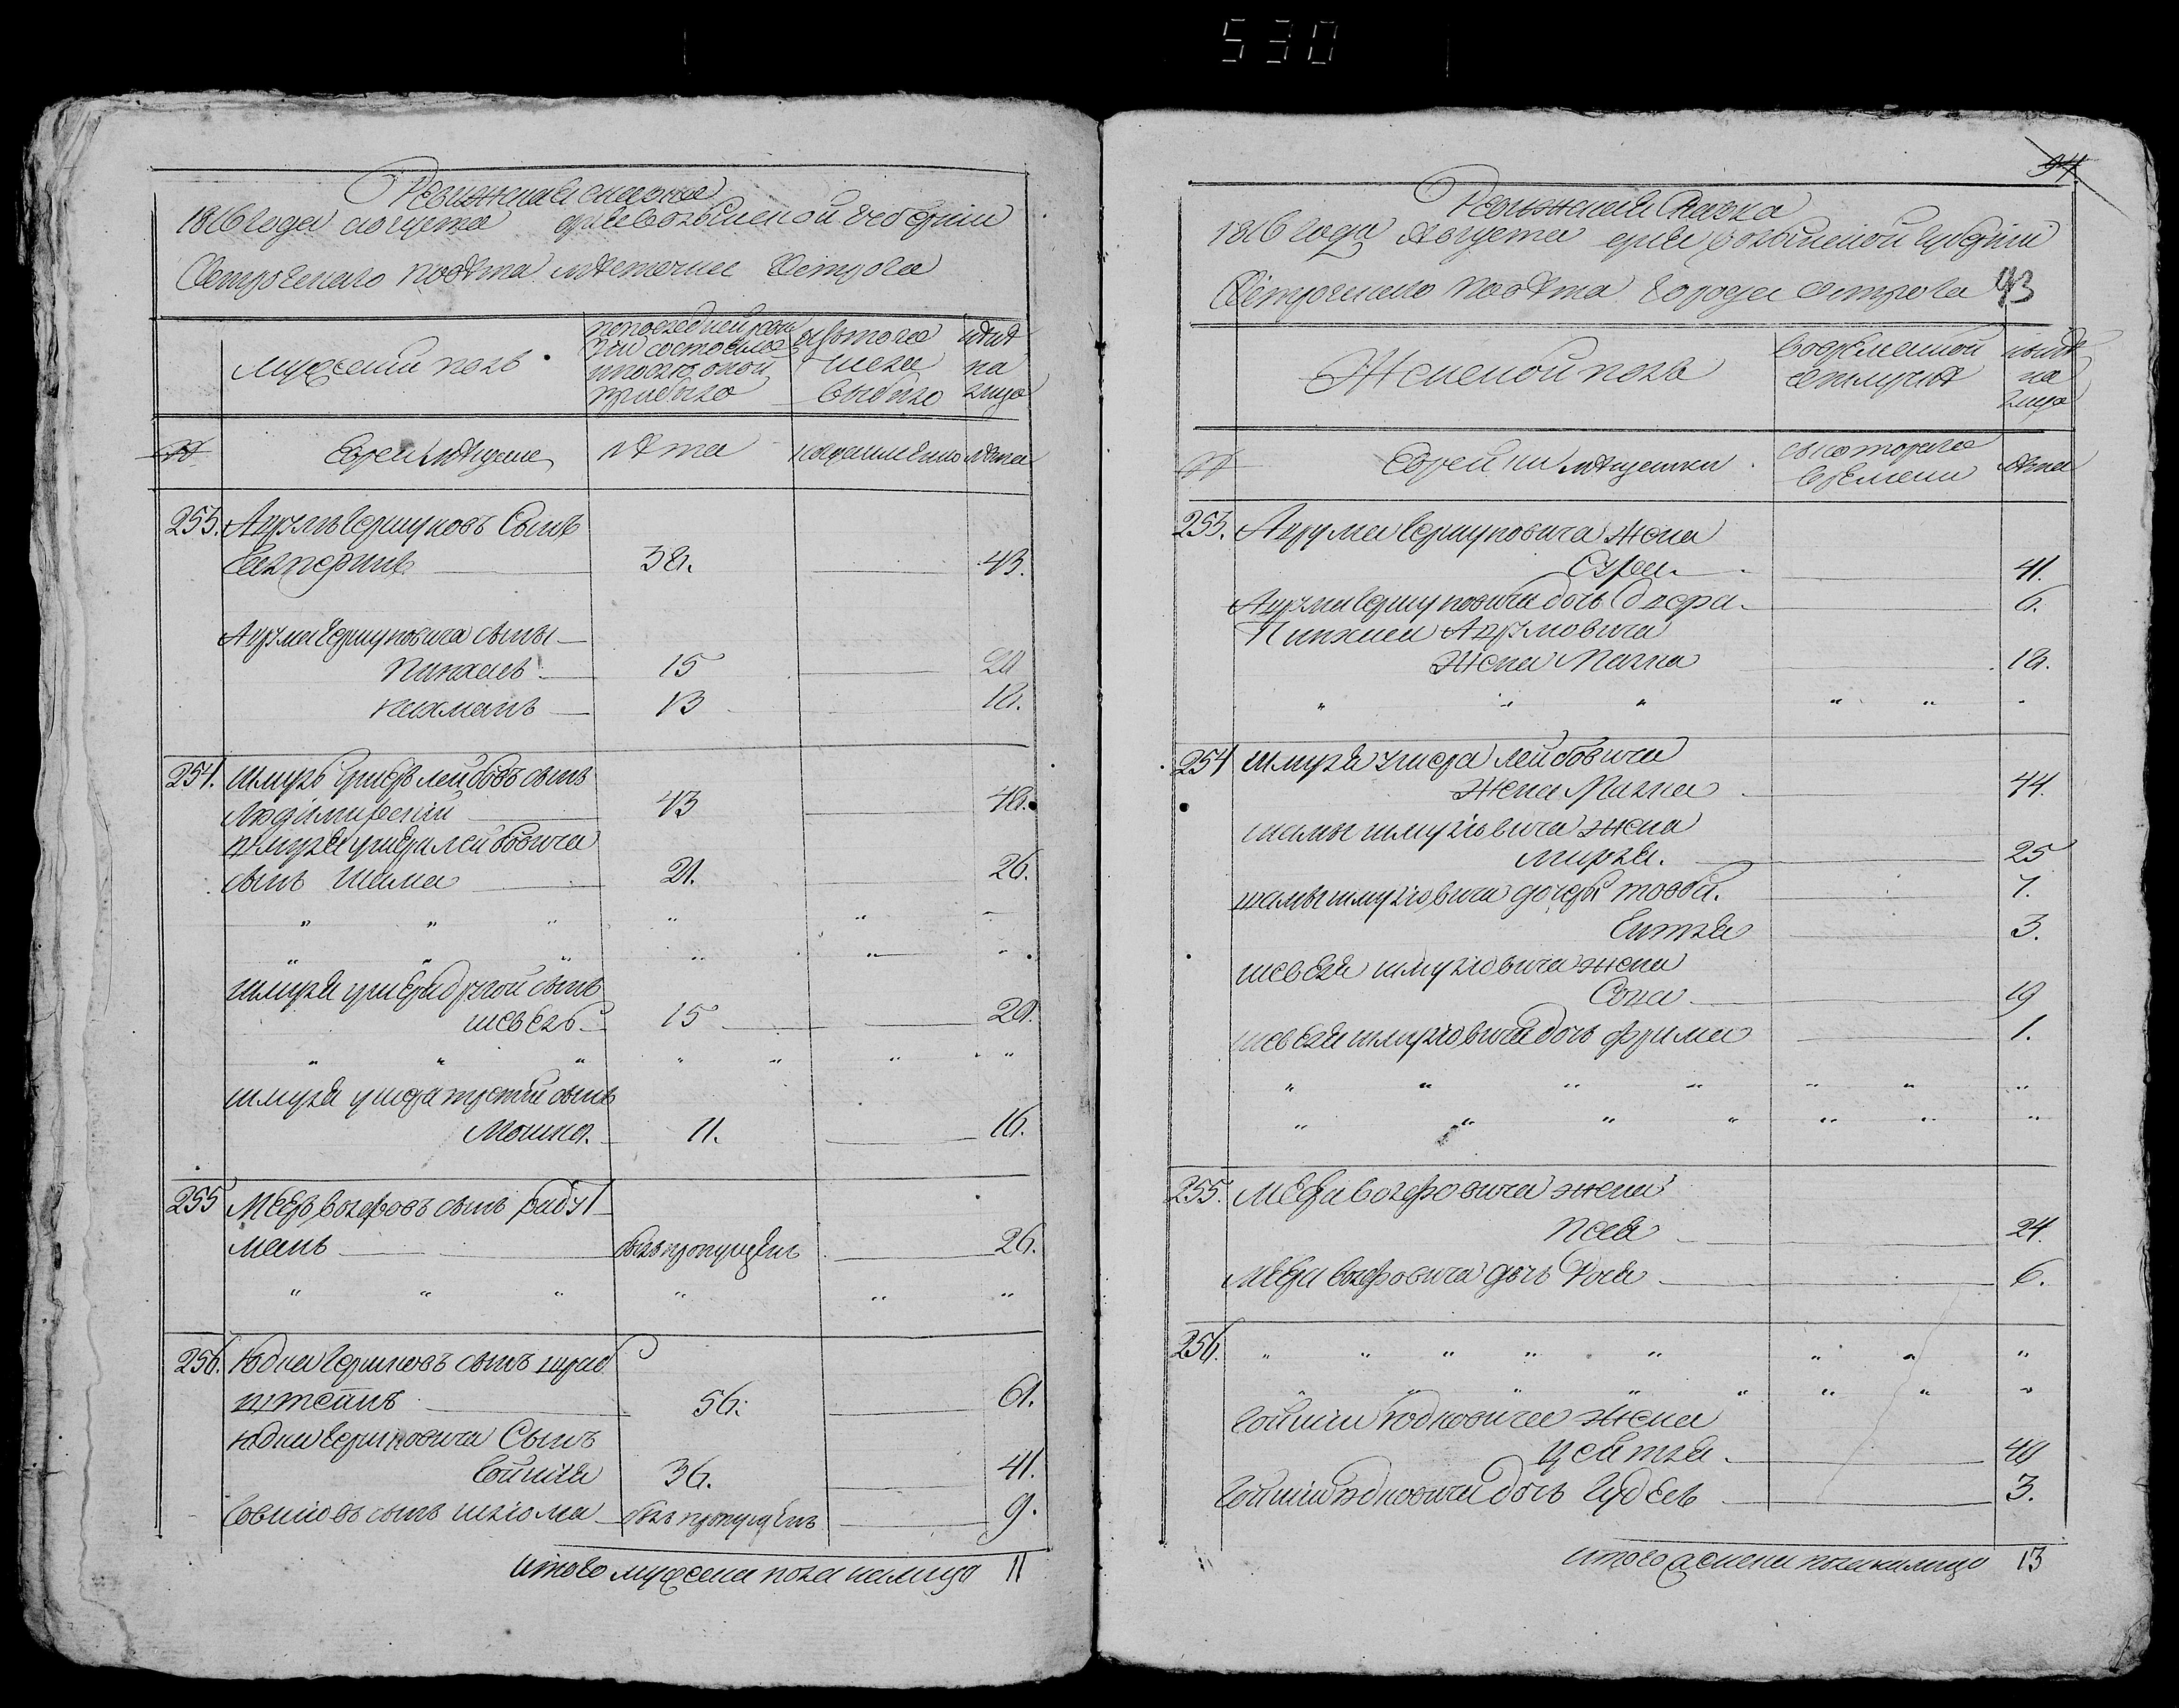 530
Ревижная сказка
1816 года августа дня Волынской губернии
Острогского повѣта мѣстечка Острога
Мужеский полъ
по последней ревизии состояло и после оной прибыло
изъ того числа выбыло
нынѣ на лицо
№
Евреи мѣщане
лѣта
лѣта
253. Аврумъ Гершковъ сынъ
Галперинъ 38. 43.
Аврума Гершковича сыны
Пинхасъ 15 20
Нахманъ 13 18.
254. Шмуль Ушеръ Лейбовъ сынъ
43 48.
Шмуля Ушера Лейбовича
сынъ Шама 21. 26.
" " " " " "
" " " " " "
Шмуля Ушера другой сынъ
Шевель 15 20.
" " " " " " "
Шмуля Ушера третий сынъ
Мошко. 11. 16.
255 Меер Волфовъ сынъ
манъ былъ пропущенъ 26.
" " " " " "
256. Юдка Гершковъ сынъ
штеинъ 56. 61.
Юдка Гершковича Сынъ
36. 41.
сынъ Шлиома былъ пропущенъ 9.
итого мужеска пола налицо 11
94
Ревижная Сказка
1816 года Августа дня Волынской губернии
Острогского повѣта города Острога 93
Женской полъ
во временной отлучкѣ
нынѣ на лицо
№
Еврейки мѣщанки
съ котораго времени
лѣта
253. Аврума Гершковича жена
Сура 41.
Аврума Гершковича дочь Двора 6.
Пинхаса Аврумовича
жена Малка 18.
" " " " " "
254 Шмуля Ушера Лейбовича
жена Малка 44.
Шамы Шмулиовича жена
Мирля. 25
Шамы Шмулиовича дочери Товба. 7.
Ентля 3.
Шевеля Шмулиовича жена
Сона 19
Шевеля Шмулиовича дочь Фрима 1.
" " " " " " "
" " " " " " "
255. Меера Волфовича жена
Песя 24.
Меера Волфовича дочь Рося 6.
256. " " " " " " " "
" " " " " " " "
Юдковича жена
Цейтля 40
Юдковича дочь 3.
итого женска пола налицо 13